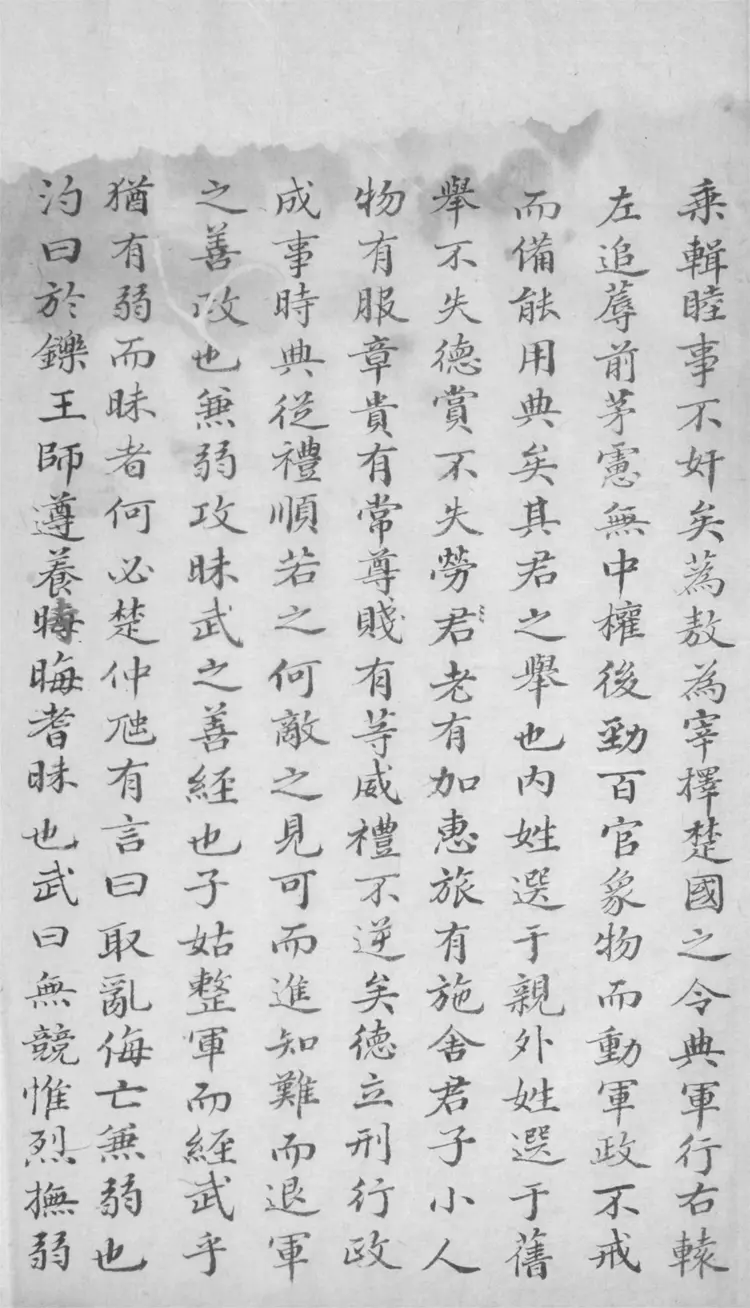 乗輯睦事不奸矣蔿敖為宰擇楚國之令典軍行右轅
左追蓐前茅慮無中權後勁百官象物而動軍政不戒
而備能用典矣其君之舉也内姓選于親外姓選于舊
舉不失德賞不失勞君老有加惠旅有施舍君子小人
物有服章貴有常尊賤有等威禮不逆矣德立刑行政
成事時典從禮順若之何敵之見可而進知難而退軍
之善政也兼弱攻昧武之善経也子姑整軍而経武乎
猶有弱而昧者何必楚仲虺有言曰取亂侮亡兼弱也
汋曰於鑠王師遵養時晦耆昧也武曰無競惟烈撫弱